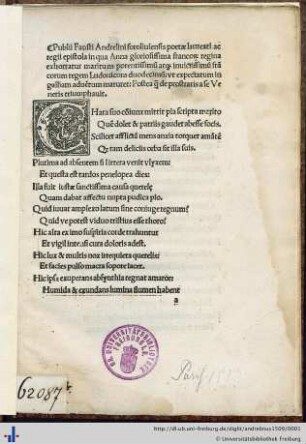 Publii Fausti Andrelini foroliuiensis poetæ laureati ac
regii epistola in qua Anna gloriosissima francoꝝ regina
exhortatur maritum potentissimū atqꝫ inuictissimū frā
corum regem Ludouicum duodecimū: vt expectatum in
galliam aduētum maturet: Postea ꝗ̄ de prostratis a se Ve
netis triumphauit.
CHara suo cōiunx mittit pia scripta marito
Quē dolet & patriis gaudet abesse focis.
Scilicet afflictā mens anxia torquet amātē
Et tam delicis orba sit illa suis.
Plurima ad absentem si littera venit vlyxem:
Et questa est tardos penelopea dies:
Illa fuit iustæ sanctissima causa querelæ
Quam dabat affectu nupta pudica pio.
Quid iuuat amplexo latum sine coniuge regnum?
Quid ve potest viduo tristius esse thoro?
Hic alta ex imo suspiria corde trahuntur
Et vigil intensi cura doloris adest.
Hic lux & multis nox irrequieta querelis:
Et facies pulso macra sopore iacet.
Hic ipsa exuperans absynthia regnat amaror:
Humida & exundans lumina flumen habent
a
62087